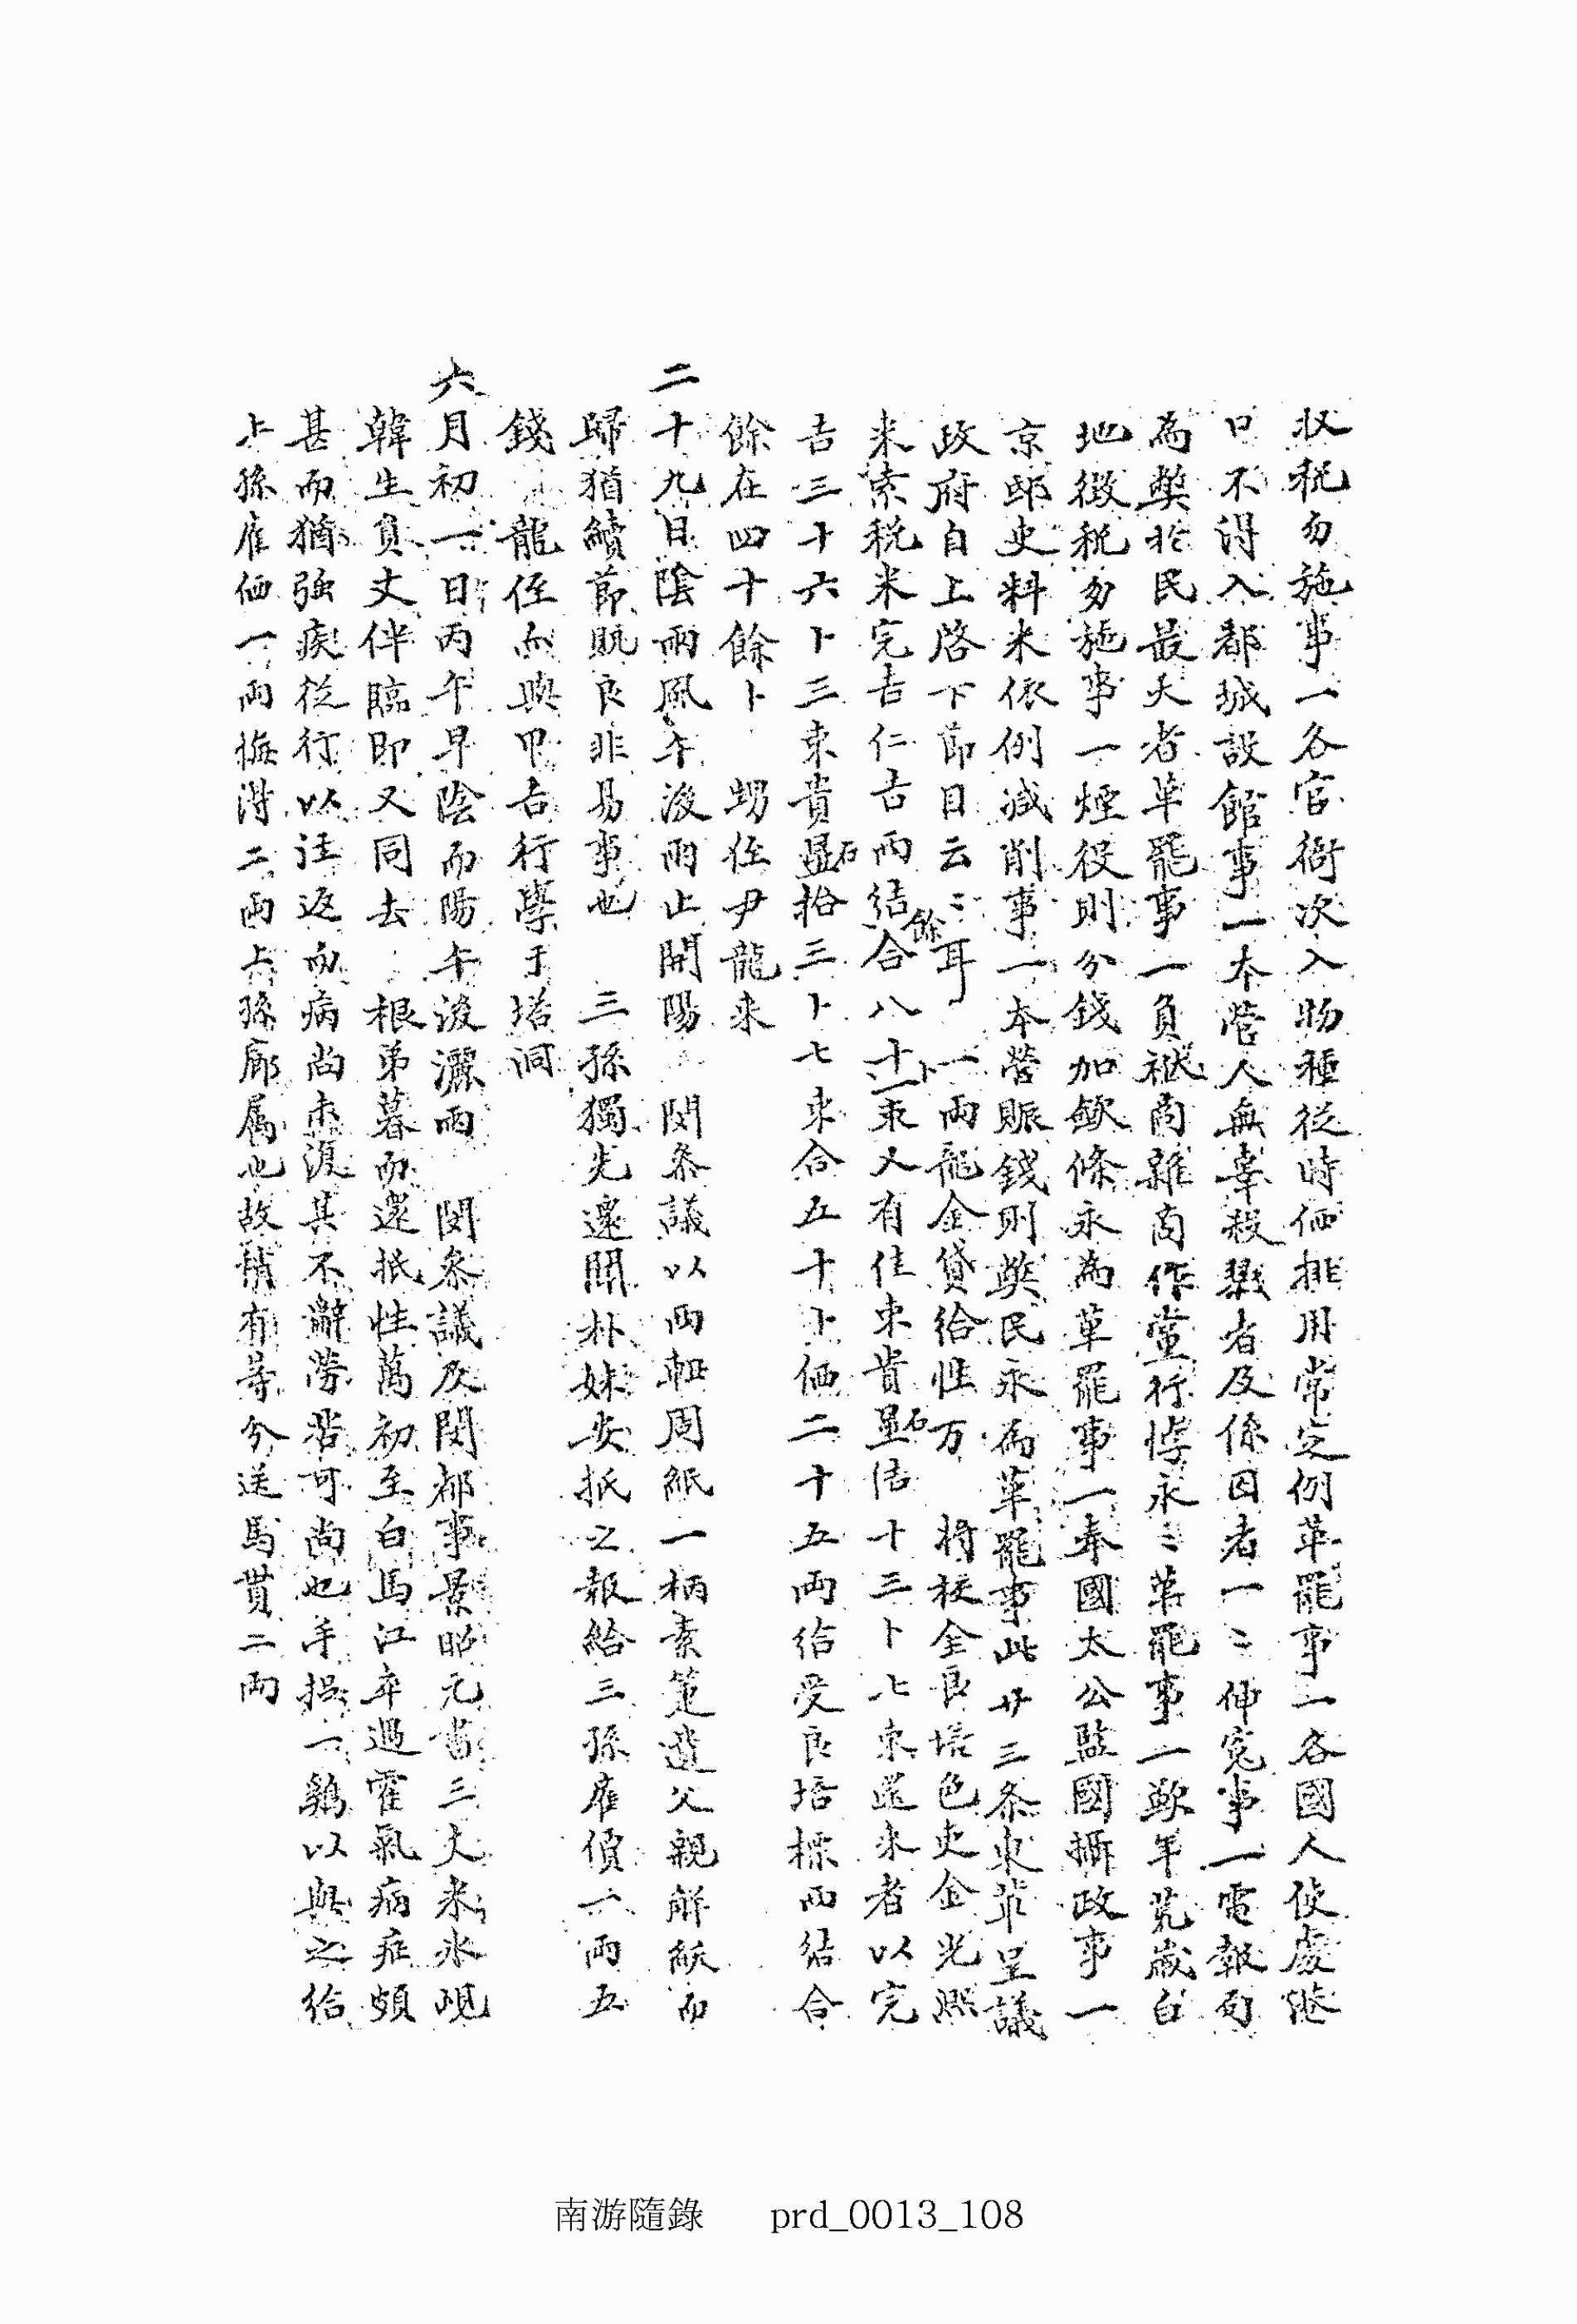 収税勿施事一各官衙次入物種從時価排用常定例革罷事一各國人使處港
口不得入都城設館事一本營人無辜殺戮者及係囚者一〻伸寃事一電報局
為獘於民最大者革罷事一負褓商雜商作黨行悖永〻革罷事一歉年荒歲白
地徵税勿施事一煙役則分錢加斂條永為革罷事一奉國太公監國攝政事一
京邸吏料米依例减削事一本營賑錢則獘民永為革罷事此廿三条東䒭呈議
政府自上啓下節目云〻耳 一両龍金貸給性万 將校全良培色吏金光熙
来索税米完吉仁吉両結餘合八十卜一束又有住束貴显石結十三卜七束並来者以完
吉三十六卜三束貴显石拾三卜七束合五十卜価二十五両給受良培標而結合
餘在四十餘卜 甥侄尹龍来
二十九日陰雨風午後雨止開陽 閔叅議以両軺周紙一柄素箑遺父親解紙而
歸猶續莭貺良非易事也 三孫獨先還關朴妹安抵之報給三孫雇價一両五
錢 龍侄向與甲右行學于塔洞
六月初一日丙午早陰而陽午後灑雨 閔叅議及閔都事景昭元書三丈来氷峴
韓生負丈伴臨即又同去 根弟暮而還抵性萬初至白馬江卒過霍氣病症頗
甚而猶强疾從行以注返而病尚未復其不辭勞苦可尚也手提一鷄以與之給
卜孫雇価一両撫得二両卜孫廊属也故稍有等分送馬貰二両
南游隨錄 prd_0013_108